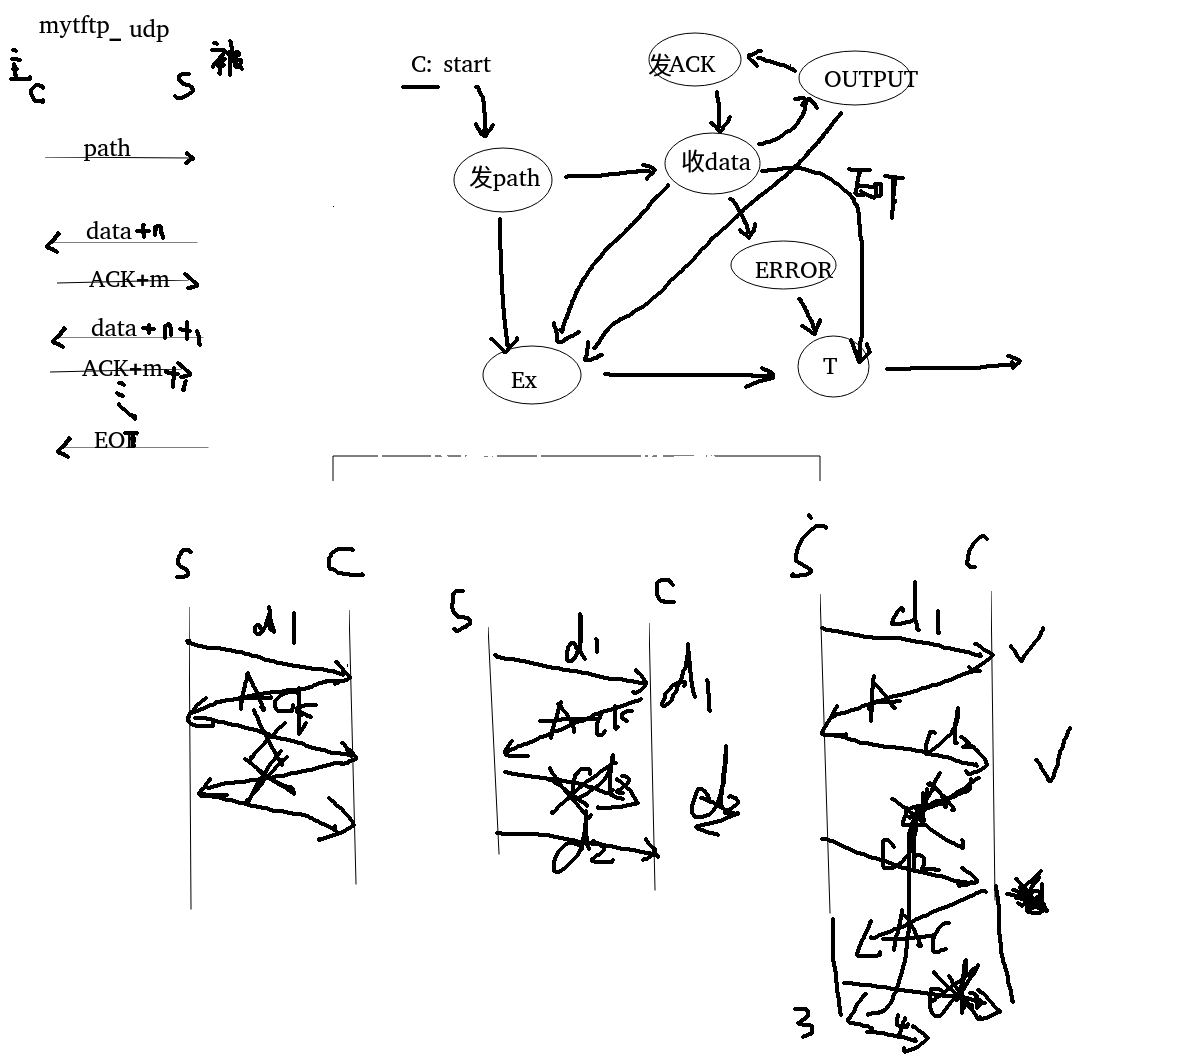 mytftp_ udp
主
C
S
path
data+n
ACK+m
data+n+1
ACK+m+1
EOT
C: start
发path
收data
发ACK
OUTPUT
EOT
ERROR
Ex
T
S C
d1
Ack
S C
d1
d1
Ack
d2
d2
d2
S C
d1
A
d
A
d2
AC
3
4